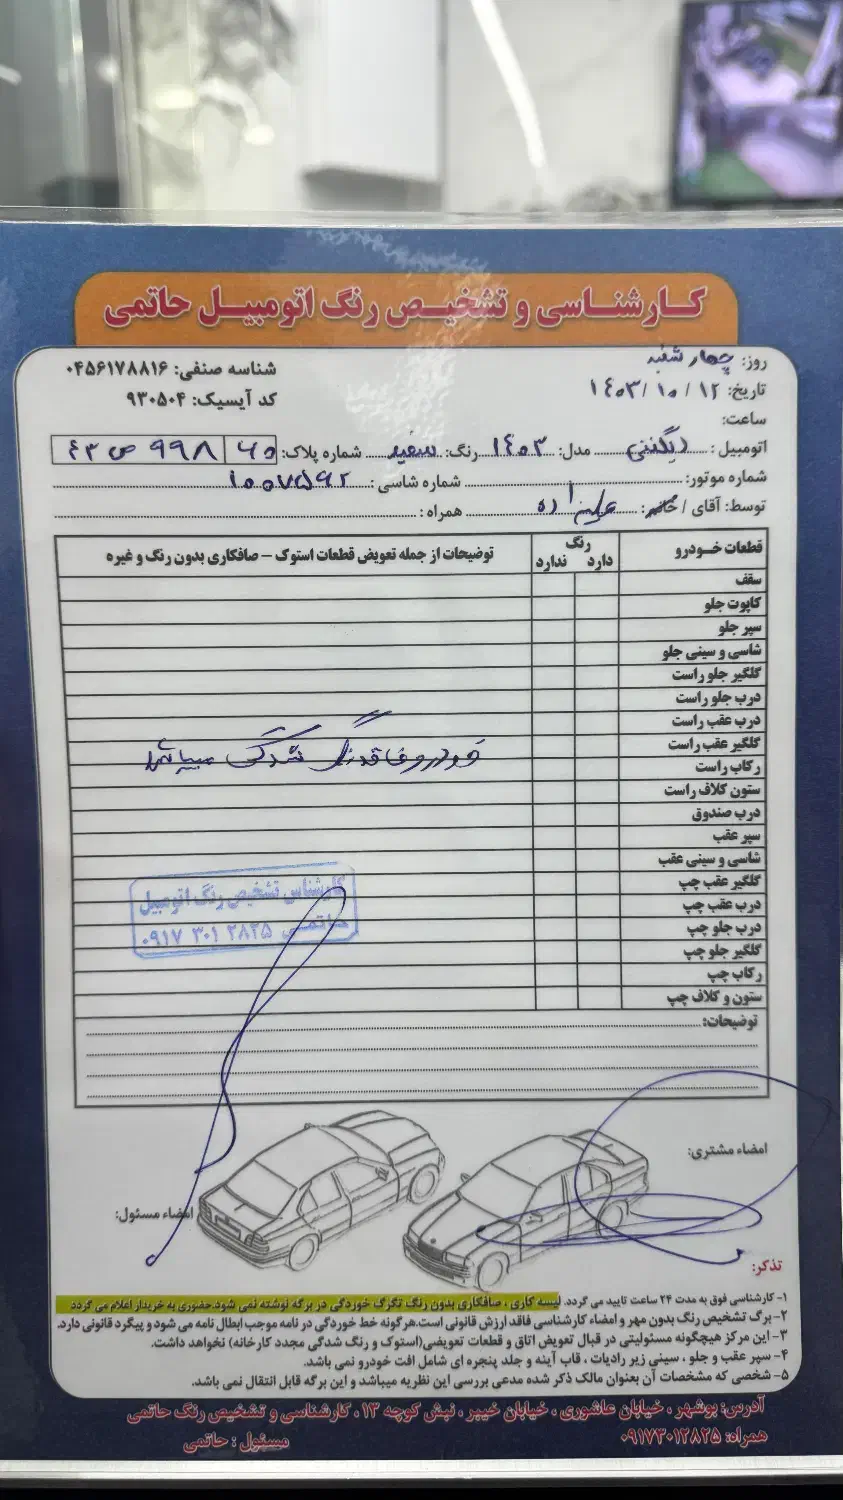 کارشناسی و تشخیص رنگ اتومبیل حاتمی
روز: چهارشنبه
شناسه صنفی: ۰۴۵۶۱۷۸۸۱۶
تاریخ: ۱۴۰۳/۱۰/۱۲
کد آیسیک: ۹۳۰۵۰۴
ساعت:
اتومبیل: دیگنتی مدل: ۱۴۰۳ رنگ: سفید شماره پلاک: ۴۳ ص ۹۹۸ | ۶۵
شماره موتور: شماره شاسی: ۱۰۰۷۵۹۲
توسط: آقای / خانم: همراه:
قطعات خودرو
رنگ
دارد ندارد
توضیحات از جمله تعویض قطعات استوک – صافکاری بدون رنگ و غیره
سقف
کاپوت جلو
سپر جلو
شاسی و سینی جلو
گلگیر جلو راست
درب جلو راست
درب عقب راست
گلگیر عقب راست
خودرو فاقد رنگ شدگی میباشد
رکاب راست
ستون کلاف راست
درب صندوق
سپر عقب
شاسی و سینی عقب
گلگیر عقب چپ
درب عقب چپ
درب جلو چپ
گلگیر جلو چپ
رکاب چپ
ستون و کلاف چپ
کارشناس تشخیص رنگ اتومبیل
حاتمی ۰۹۱۷ ۳۰۱ ۲۸۲۵
توضیحات:
امضاء مشتری:
امضاء مسئول:
تذکر:
۱- کارشناسی فوق به مدت ۲۴ ساعت تایید می گردد. لیسه کاری ، صافکاری بدون رنگ تگرگ خوردگی در برگه نوشته نمی شود.حضوری به خریدار اعلام می گردد
۲- برگ تشخیص رنگ بدون مهر و امضاء کارشناسی فاقد ارزش قانونی است.هرگونه خط خوردگی در نامه موجب ابطال نامه می شود و پیگرد قانونی دارد.
۳- این مرکز هیچگونه مسئولیتی در قبال تعویض اتاق و قطعات تعویضی(استوک و رنگ شدگی مجدد کارخانه) نخواهد داشت.
۴- سپر عقب و جلو ، سینی زیر رادیات ، قاب آینه و جلد پنجره ای شامل افت خودرو نمی باشد.
۵- شخصی که مشخصات آن بعنوان مالک ذکر شده مدعی بررسی این نظریه میباشد و این برگه قابل انتقال نمی باشد.
آدرس: بوشهر ، خیابان عاشوری ، خیابان خیبر ، نبش کوچه ۱۳ ، کارشناسی و تشخیص رنگ حاتمی
همراه: ۰۹۱۷۳۰۱۲۸۲۵
مسئول : حاتمی